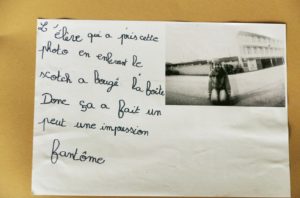 L'élève qui a pris cette
photo en enlevant le
scotch a bougé la boîte
Donc ça a fait un
peut une impression
fantôme